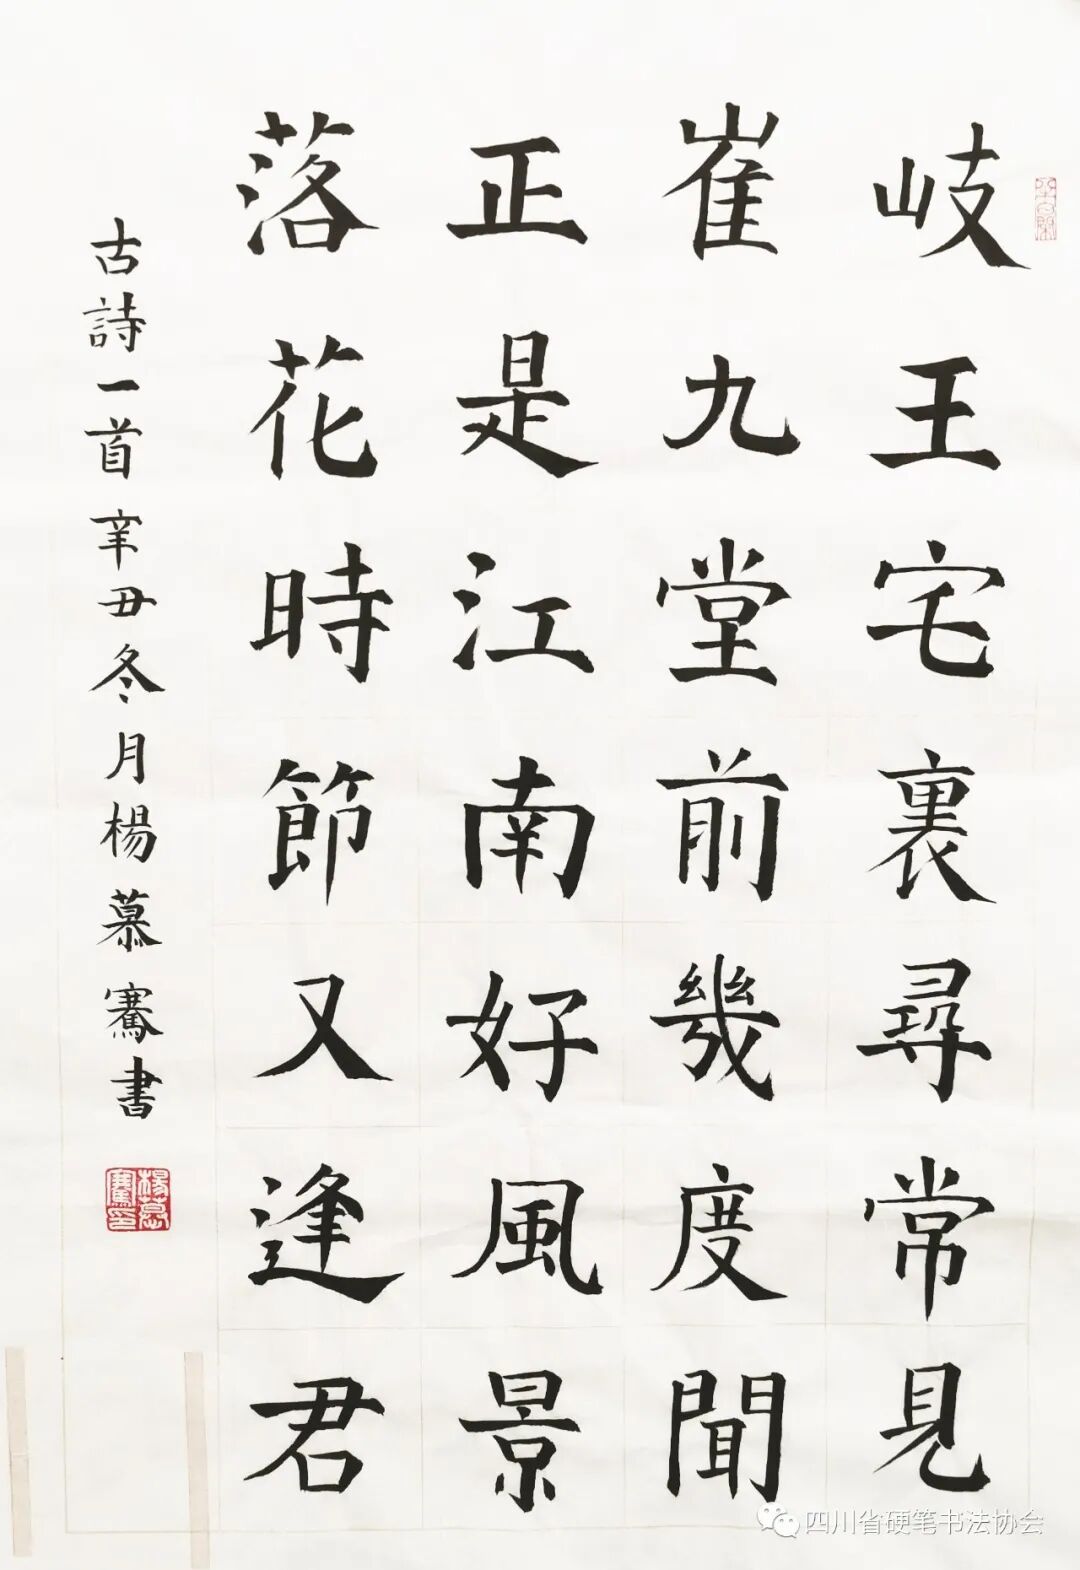 岐王宅裏尋常見
崔九堂前幾度聞
正是江南好風景
落花時節又逢君
古詩一首辛丑冬月楊慕騫書
楊慕騫印
四川省硬笔书法协会